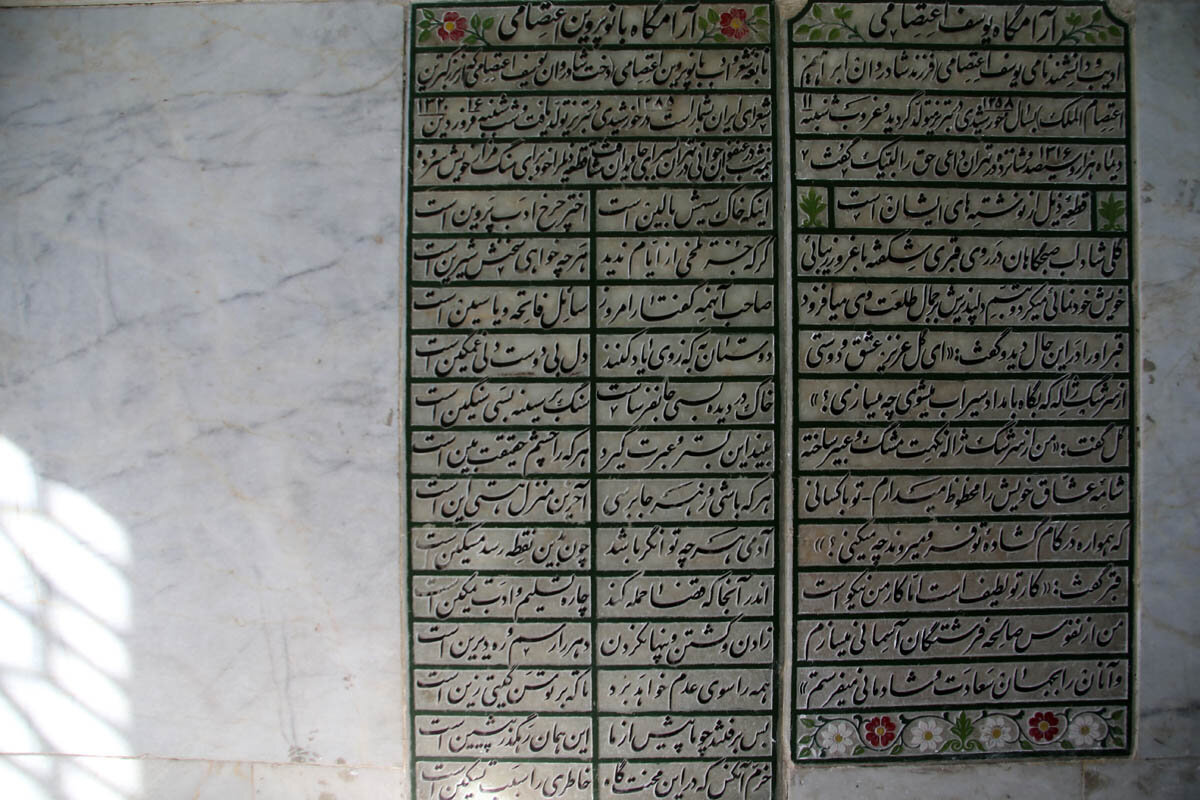 آرامگاه یوسف اعتصامی
ادیب و دانشمند نامی یوسف اعتصامی فرزند شادروان ابراهیم
اعتصام الملک) بسال ۱۲۵۸ خورشیدی در تبریز متولد گردید و غروب شنبه ۱۱
دیماه هزار و سیصد و شانزده ۱۳۱۶ در تهران داعی حق را لبیک گفت
قطعه ذیل از نوشته های ایشان است
گلی شاداب صبحگاهان در روی قبری شکفته با غرور زیبائی
خویش خودنمائی میکرد و تبسم دلپذیرش بر جمال طلعت وی میافزود
قبر او را در این حال دید و گفت: «ای گل عزیز عشق و دوستی
از سرشک ژاله که بگاه بامداد سیراب میشوی چه میسازی؟»
گل گفت: «من از سرشک ژاله نکهت مشک و عبیر ساخته
شامه عشاق خویش را محظوظ میدارم - تو با کسانی
که همواره در کام گشاده تو فرو میروند چه میکنی؟»
قبر گفت: «کار تو لطیف است اما کار من نیکو است
من از نفوس صالحه فرشتگان آسمانی میسازم
و آنان را بجهان سعادت و شادمانی میفرستم»
آرامگاه بانو پروین اعتصامی
نابغه شعر و ادب بانو پروین اعتصامی دخت شادروان یوسف اعتصامی که از بزرگترین
شعرای ایران بشمار است در ۱۲۸۵ خورشیدی در تبریز تولد یافت و شب شنبه ۱۶ فروردین ۱۳۲۰
در عنفوان جوانی در تهران بسرای جاویدان شتافت قطعه زیر را خود برای سنگ مزار خویش سروده
اینکه خاک سیهش بالین است اختر چرخ ادب پروین است
گر که جز تلخی از ایام ندید هر چه خواهی سخنش شیرین است
صاحب آنهمه گفتار امروز سائل فاتحه و یاسین است
دوستان به که ز وی یاد کنند دل بی دوست دلی غمگین است
خاک در دیده بسی جانفرساست سنگ بر سینه بسی سنگین است
بیند این بستر و عبرت گیرد هر که را چشم حقیقت بین است
هر که باشی و ز هر جا برسی آخرین منزل هستی این است
آدمی هر چه توانگر باشد چون بدین نقطه رسد مسکین است
اندر آنجا که قضا حمله کند چاره تسلیم و ادب تمکین است
زادن و کشتن و پنهان کردن دهر را رسم و ره دیرین است
همه را سوی عدم خواهد برد تا که بر توسن گیتی زین است
بس برفتند چو ما پیش از ما این همان رهگذر پیشین است
خرم آنکس که در این محنت گاه خاطری را سبب تسکین است